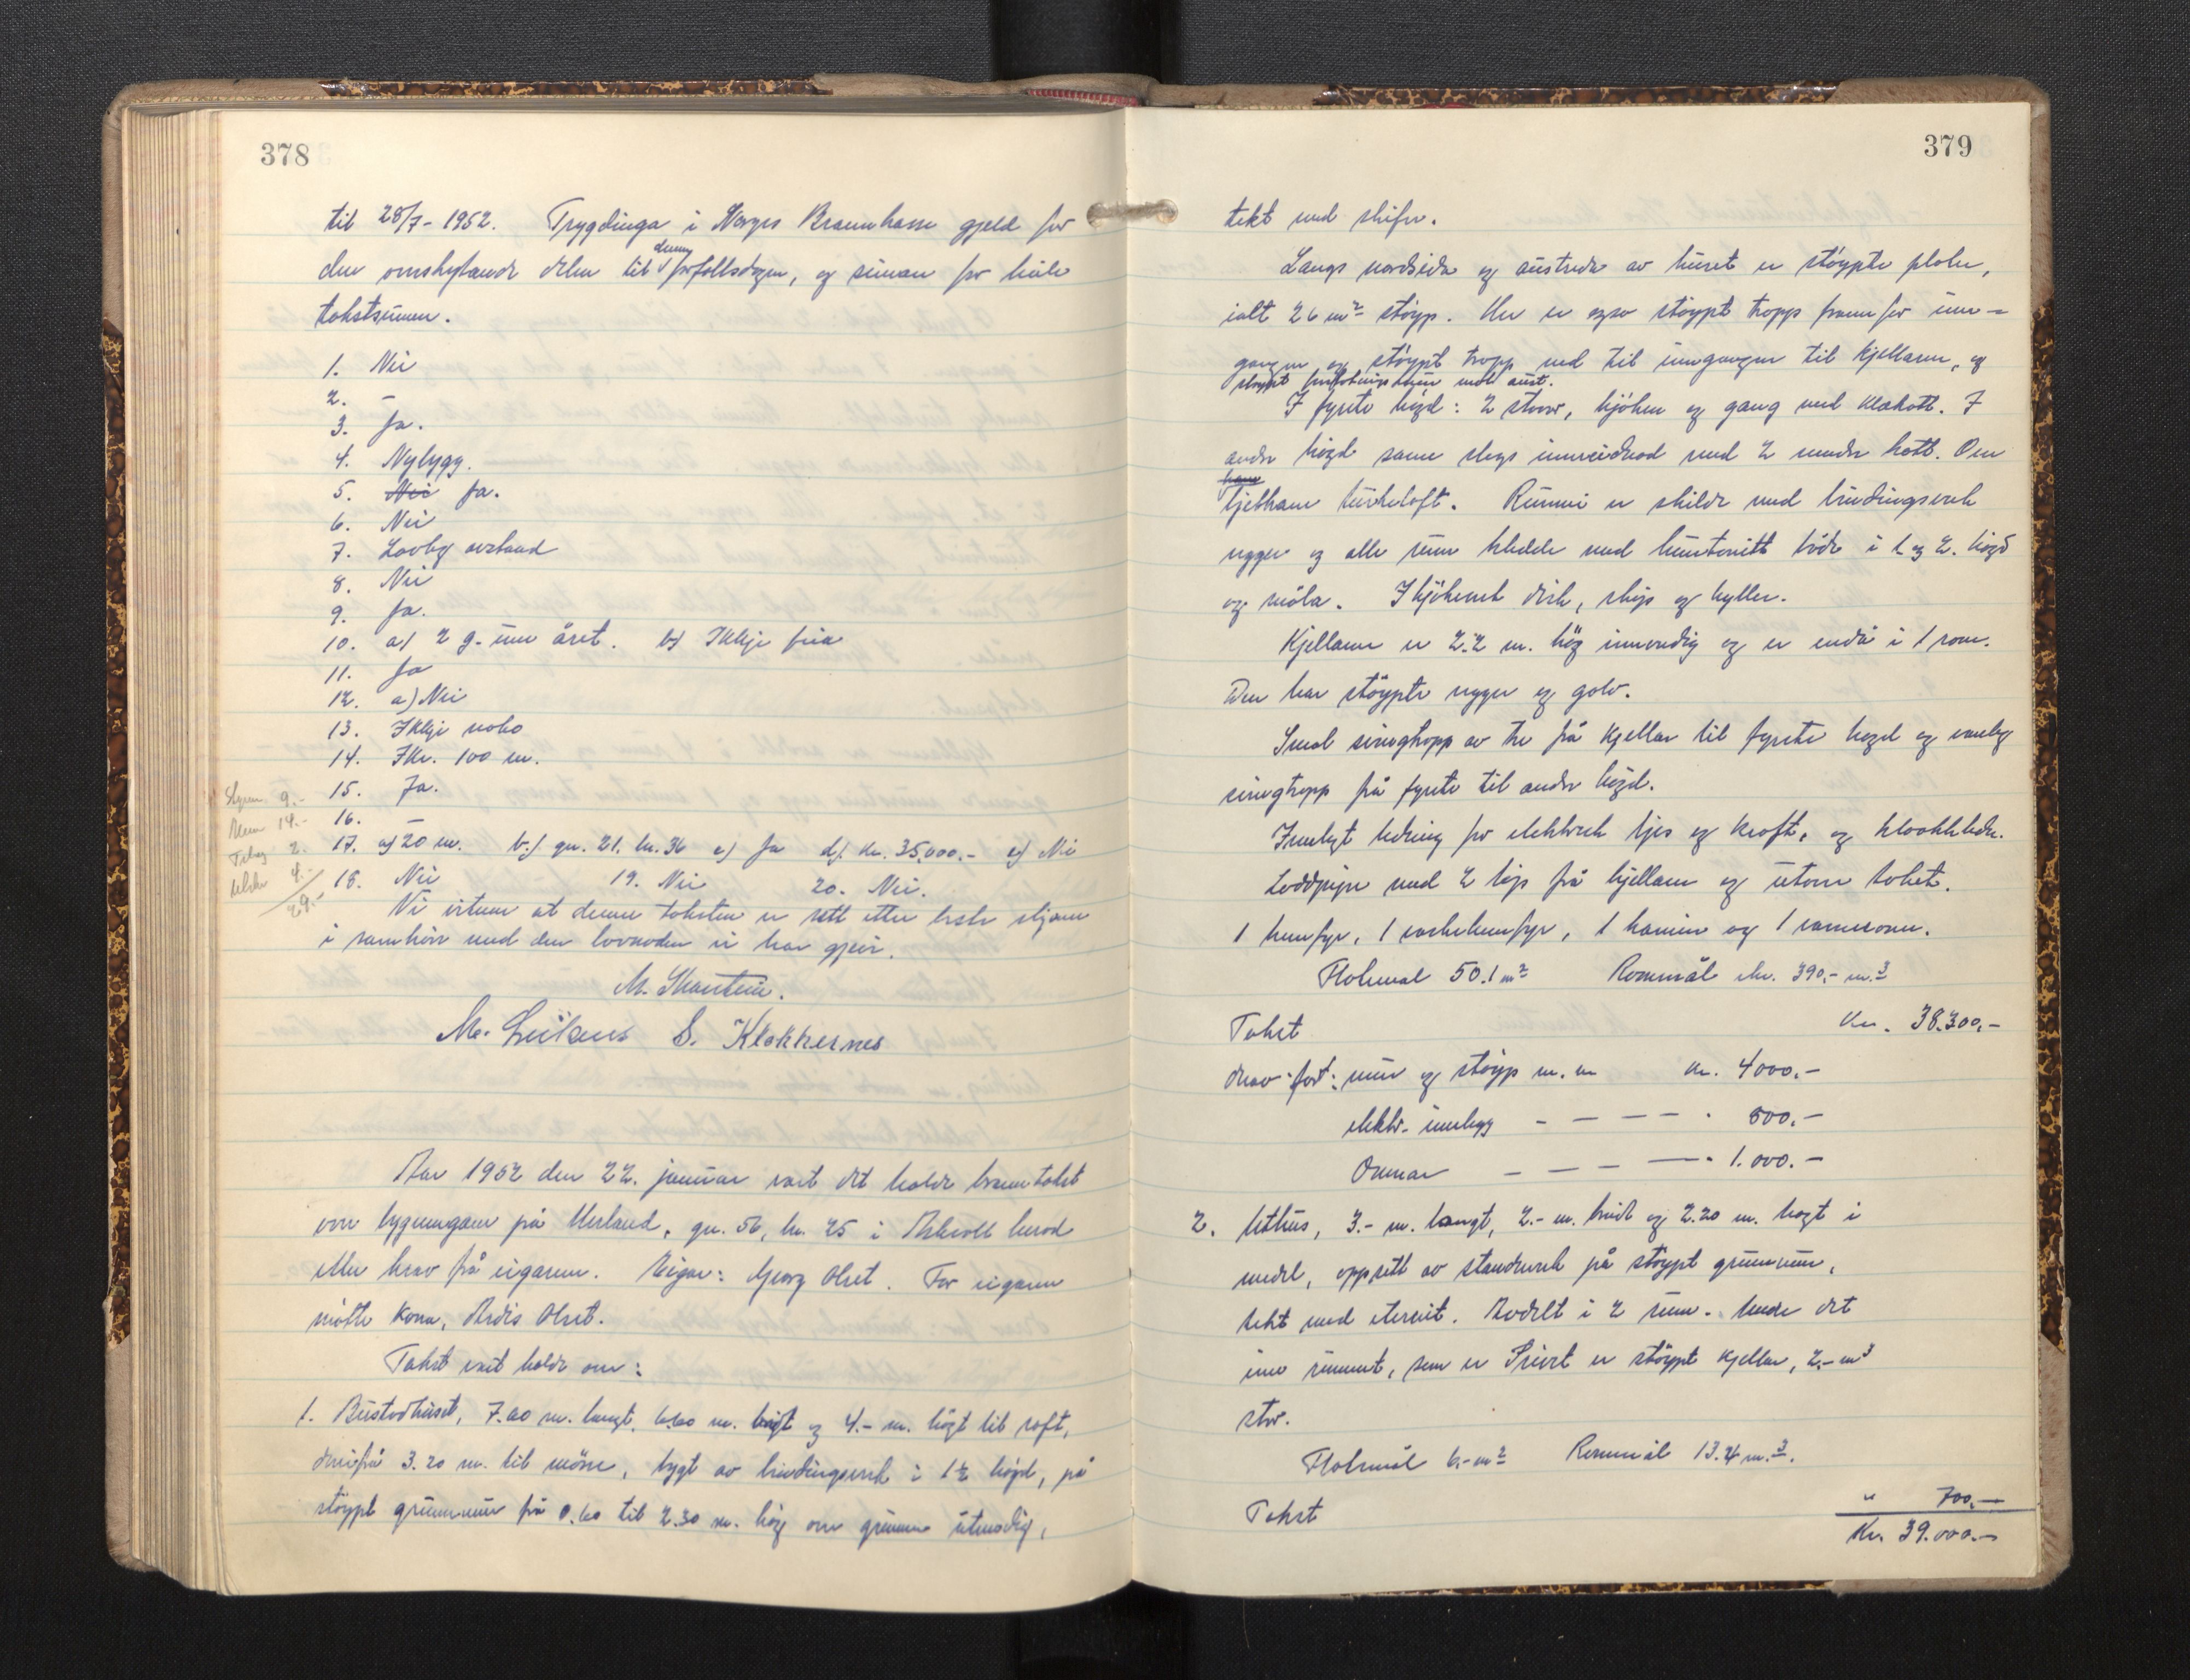 378
til 28/7-1952. Trygdinga i Norges Brannkasse gjeld for
den omskytande delen til denne forfallsdagen, og siman for heile
takstsumen.
1. Nei
2. -
3. Ja.
4. Nybygg.
5. Nei Ja.
6. Nei
7. Lovleg avstand
8. Nei
9. Ja.
10. a) 2 g. um året. b) Ikkje feia
11. Ja
12. a) Nei
13. Ikkje noko
14. Ikr. 100 m.
15. Ja.
16. -
17. a) 20 m. b.) gn. 21. bn. 36 c) Ja d). kr. 35.000.- e) Nei
18. Nei 19. Nei 20. Nei.
9.-
14.-
2.
4.-
29.-
Vi vitnar at denne taksten er sett etter beste skjøn
i samhøve med den lovnaden vi har gjeve.
M. Skarstein.
S. Klokkernes
Aar 1952 den 22. januar vart det halde branntakst
over bygningane på Merland, gn. 56, bn. 25 i Askvoll herad
etter krav frå eigaren. Eigar: Georg Olset. For eigaren
møtte kona, Ardis Olset.
Takst vart halde over:
1. Bustadhuset, 7.60 m. langt, 6.60 m. breidt og 4.- m. høgt til raft,
derifrå 3.20 m. til møne, bygt av bindingsverk i 1½ høgd, på
støypt grunnmur frå 0.60 til 2.30 m. høg over grunnen utvendig,
379
tekt med skifer.
Langs nordsida og austsida av huset er støypte plater,
ialt 26 m² støyp. Her er ogso støypt tropp framfor inn-
gangen og støypt tropp ned til inngangen til kjellaren, og
støypt mur mot aust.
I fyrste høgd: 2 stover, kjøken og gang med klekott. I
andre høgd same slags innreidnad med 2 mindre kott. Over
hane
bjelkane tørkeloft. Rummi er skilde med bindingsverk
vegger og alle rum kledde med huntonitt både i 1. og 2. høgd
og måla. I kjøkenet disk, skåp og hyller.
Kjellaren er 2.2 m. høg innvendig og er endå i 1 rom.
Den har støypte vegger og golv.
Smal svingtropp av tre frå kjellar til fyrste høgd og vanleg
svingtropp frå fyrste til andre høgd.
Innlagt ledning for elektrisk ljos og kraft, og kloakkledn.
Loddpipe med 2 løp frå kjellaren og utover taket.
1 komfyr, 1 vaskekomfyr, 1 kamin og 1 vanesomn.
Flatemål 50.1 m² Rommål ikr. 390.- m.³
Takst Kr. 38.300.-
Derav fort: mur og støyp m. m kr. 4000.-
elektr. innlegg - - - - - 800.-
Omnar - - - - - 1.000.-
2. Uthus, 3.- m. langt, 2.- m. breidt og 2.20 m. høgt i
medel, oppsett av standverk på støypt grunnmur,
tekt med eternit. Avdelt i 2 rum. Under det
eine rummet, som er Privet er støypt kjellar, 2.- m³
stor.
Flatemål 6.- m² Rommål 13.4 m.³.
Takst " 700.-
Kr. 39.000.-